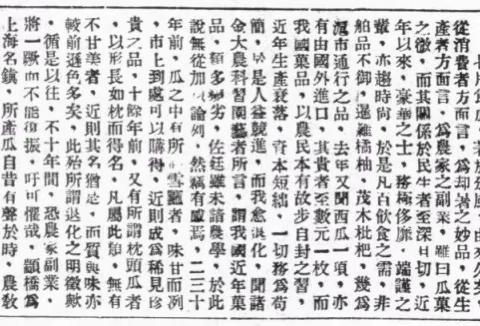 從消費者方面言、為却暑之妙品、從生
產者方面言、為農家之副業、雖曰瓜菓
之微、而其關係於民生者至深且切、近
年以來、豪華之士、務極侈靡、端謹之
輩、亦趨時尚、於是凡百飲食之需、非
舶品不御、暹羅橘柚、茂木枇杷、幾為
滬市通行之品、去年又聞西瓜一項、亦
有由國外進口、其貴者至數元一枚、而
我國菓品、以農民本有故步自封之習、
近年生產衰落、資本短絀、一切務為苟
簡、於是人益競進、而我愈退化、聞諸
金大農科習園藝者所言、謂我國近年菓
品、頗多變劣、佐廷雖未諳農學、於此
說無從加以論列、然竊有感焉、二三十
年前、瓜之中有所謂雪瓤者、味甘而冽
、市上到處可以購得、近則成為稀見珍
貴之品、十餘年前、又有所謂枕頭瓜者
、以形長如枕而得名、凡屬此種、無有
不甘美者、近則其名猶是、而質與味亦
較前遜色多矣、此殆所謂退化之明徵歟
、循是以往、不十年間、恐農家副業、
將一蹶而不能復振、吁可懼哉、顓橋為
上海名鎮、所產瓜自昔有聲於時、農敎